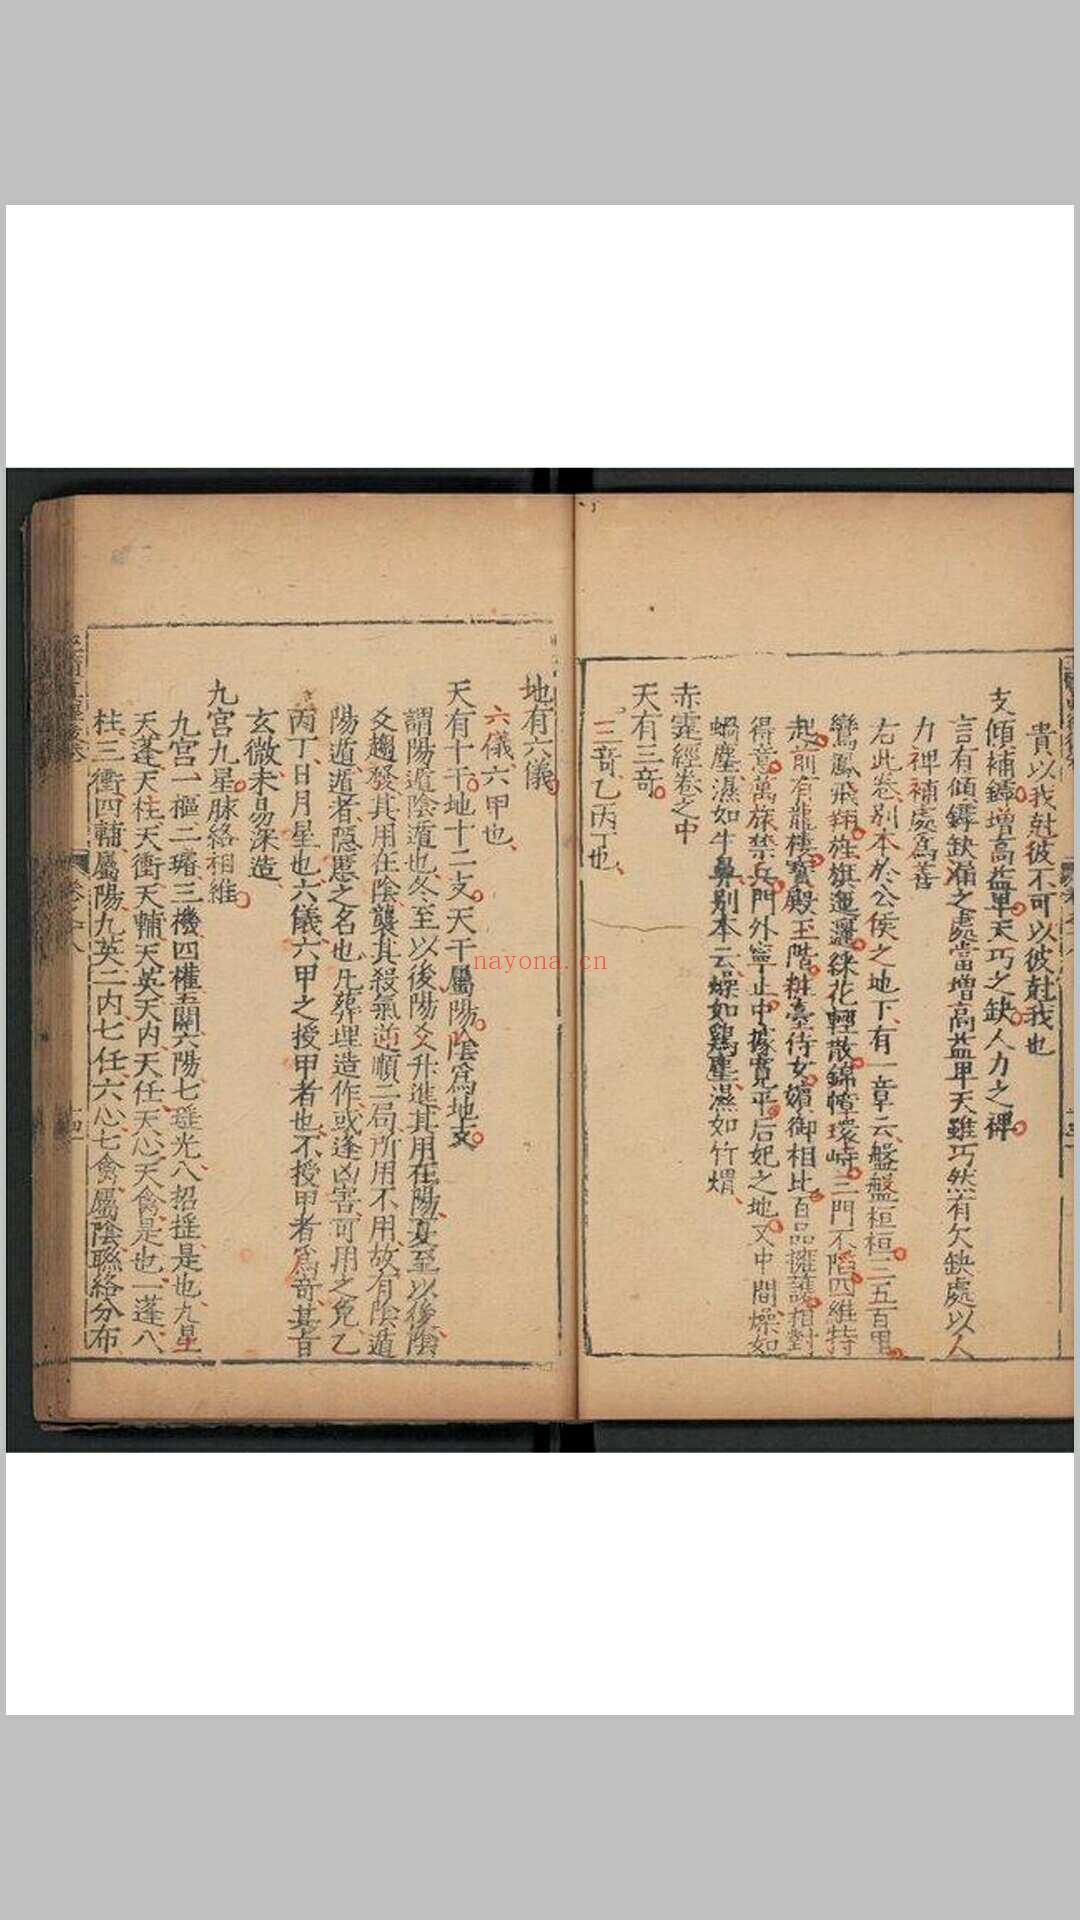 貴以我尅彼不可以彼尅我也
支傾補罅增高益卑天巧之缺人力之裨
言有傾罅缺漏之處當增高益卑天雖巧然有欠缺處以人
力裨補處為善
右此卷別本於公侯之地下有一章云盤盤桓桓三五百里
鸞鳳飛翔旌旗運邐綵花輕散錦幛環峙三門不陷四維特
起前有龍樓寶殿玉階耕臺侍女媚御相比百品擁護相對
得意萬旅禁兵門外寧止中據寬平后妃之地又中間燥如
蝸塵濕如牛鼻別本云燥如鷄塵濕如竹熠
赤霆經卷之中
天有三竒
三竒乙丙丁也
地有六儀
六儀六甲也
天有十干地十二支天干屬陽陰爲地支
謂陽遁陰遁也冬至以後陽爻升進其用在陽夏至以後陰
爻趨發其用在陰襲其殺氣逆順二局所用不用故有陰遁
陽遁遁者隠慝之名也凡葬埋造作或逢凶害可用之免乙
丙丁日月星也六儀六甲之授甲者也不授甲者爲竒其旨
玄微未易深造
九宮九星脉絡相維
九宮一樞二璿三機四權五闓六陽七瑶光八招摇是也九星
天蓬天柱天衝天輔天英天内天任天心天禽是也一蓬八
柱三衝四輔屬陽九英二内七任六心七禽屬陰聮絡分布
卷六八
十四
nayona.cn